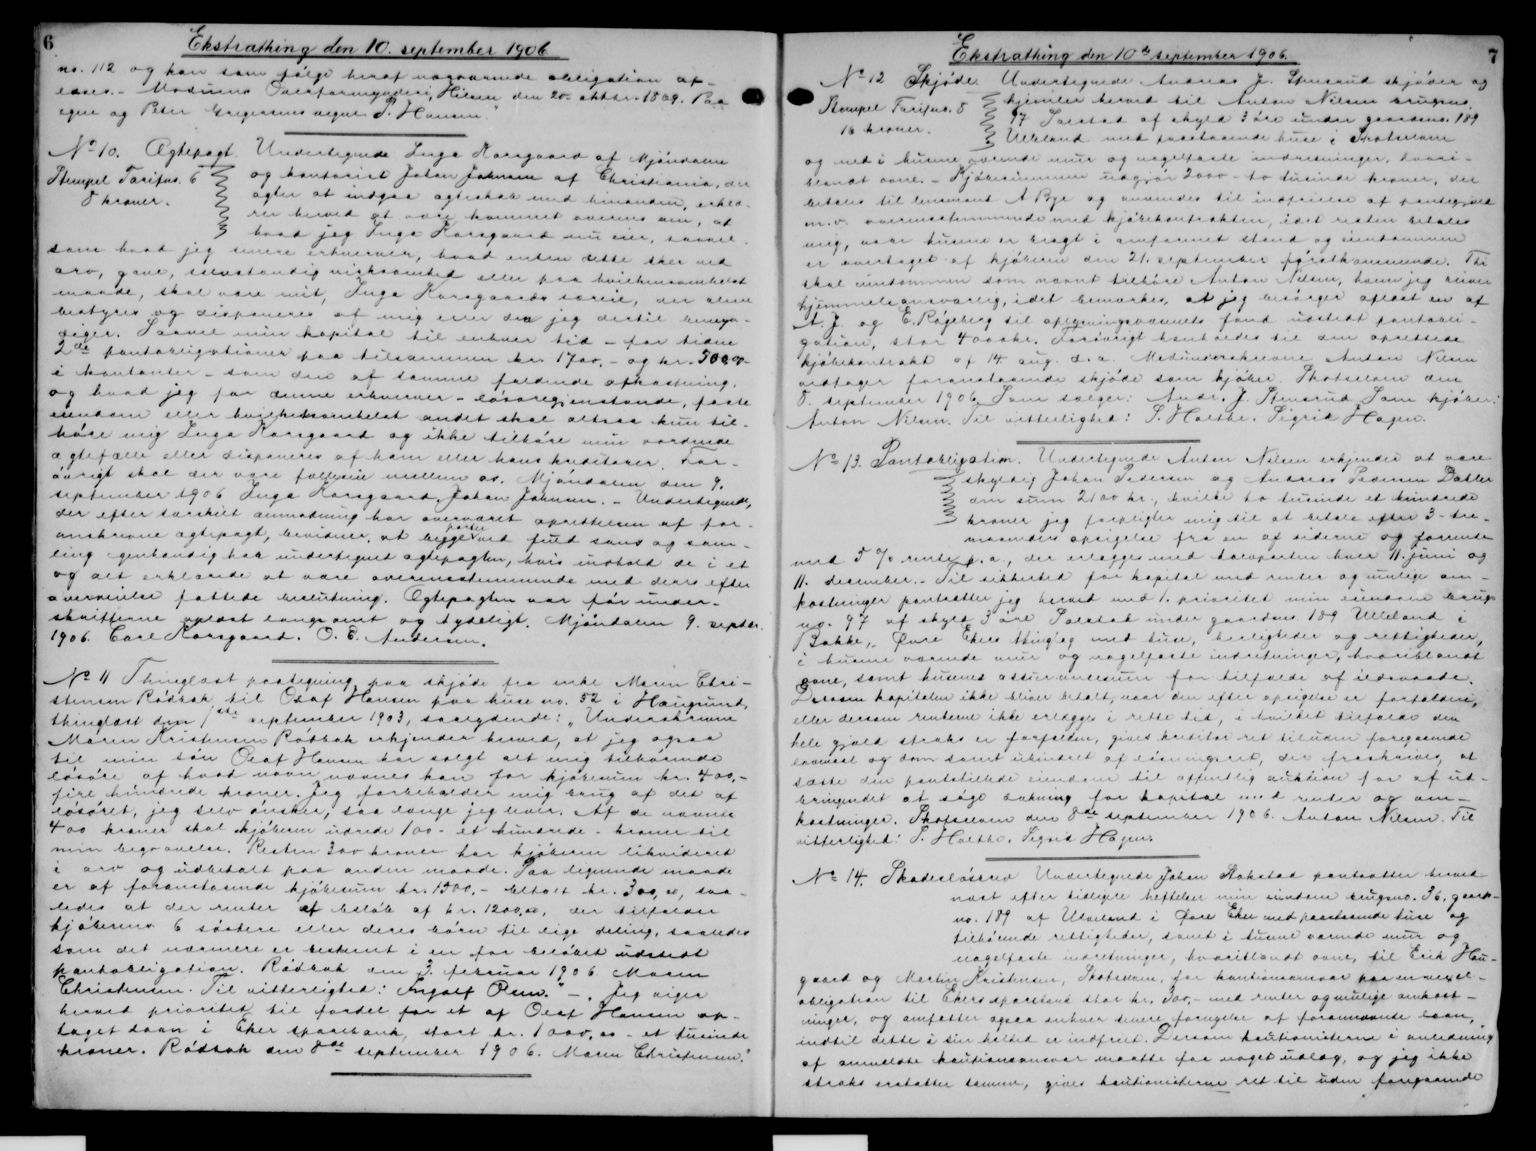 6
Ekstrathing den 10. september 1906
no. 112 og kan som følge heraf nærværende obligation af-
læses. - Modums Overformynderi, Hilsen, den 20 oktbr. 1889. Paa
egne og Peter Gregersens vegne P. Hansen."
No 10. Ægtepagt. Undertegnede Inga Korsgaard af Mjøndalen
Stempel Tarifno. 6 og kontorist Johan Johnsen af Christiania, der
8 kroner. agter at indgaa ægteskab med hinanden, erklæ-
rer herved at være kommet overens om, at
hvad jeg Inga Korsgaard nu eier, saavel
som hvad jeg senere erhverver, hvad enten dette sker ved
arv, gave, selvstændig virksomhed eller paa hvilkensomhelst
maade, skal være mit, Inga Korsgaards særeie, der alene
bestyres og disponeres af mig eller den jeg dertil bemyn-
diger. Saavel min kapital til enhver tid - for tiden
2de pantobligationer paa tilsammen kr. 1700.- og kr. 500,00
i kontanter - som den af samme faldende afkastning,
og hvad jeg for denne erhverver - løsøregjenstande, faste
eiendom eller hvilketsomhelst andet skal altsaa kun til-
høre mig Inga Korsgaard og ikke tilhøre min vordende
ægtefælle eller disponeres af ham eller hans kreditorer. For-
øvrigt skal der være fælleseie mellem os. Mjøndalen den 9.
september 1906 Inga Korsgaard. Johan Johnsen. - Undertegnede,
der efter særskilt anmodning har overværet oprettelsen af for-
anskrevne ægtepagt, bevidner, at begge parter ved fuld sans og sam-
ling egenhændig har undertegnet ægtepagten, hvis indhold de i et
og alt erklærede at være overensstemmende med deres efter
overveielse fattede beslutning. Ægtepagten var før under-
skrifterne oplæst langsomt og tydeligt. Mjøndalen 9. septbr.
1906. Carl Korsgaard. O. E. Andersen.
No 11 Thinglæst paategning paa skjøde fra enke Maren Chri-
stensen Rødbak til Olaf Hansen paa huse no. 52 i Haugsund,
thinglæst den 1ste september 1903, saalydende: "Underskrevne
Maren Kristensen Rødbak erkjender herved, at jeg ogsaa
til min søn Olaf Hansen har solgt alt mig tilhørende
løsøre af hvad navn nævnes kan for kjøbesum kr. 400,-
fire hundrede kroner. Jeg forbeholder mig brug af det af
løsøret, jeg selv ønsker, saa længe jeg lever. Af de nævnte
400 kroner skal kjøberen udrede 100 - et hundrede - kroner til
min begravelse. Resten 300 kroner har kjøberen likvideret
i arv og udbetalt paa anden maade. Paa lignende maade
er af foranstaaende kjøbesum kr. 1500,- betalt kr. 300,00, saa-
ledes at der rester et beløb af kr. 1200,00, der tilfalder
kjøberens 6 søstre eller deres børn til lige deling, saaledes
som det nærmere er bestemt i en for beløbet udstedt
pantobligation. Rødbak den 3. februar 1906. Maren
Christensen. Til vitterlighed: Ingolf Rem." - "Jeg viger
herved prioritet til fordel for et af Olaf Hansen op-
taget laan i Eker sparebank, stort kr. 1000,00 - et tusinde
kroner. Rødbak den 8de september 1906. Maren Christensen."
7
Ekstrathing den 10de september 1906.
No 12 Skjøde Undertegnede Andreas J. Stensrud skjøder og
Stempel Tarifno. 8 hjemler herved til Anton Nilsen brugsno.
16 kroner. 97 Solstad af skyld 3 øre under gaardsno. 189
Ulleland med paastaaende huse i Skotselven
og med i husene værende mur og nagelfaste indretninger, hvori-
blandt ovne. - Kjøbesummen udgjør 2000 - to tusinde kroner, der
betales til lensmand A Bye og anvendes til indfrielse af pantegjæld
m.v. overensstemmende med kjøbekontrakten, idet resten betales
mig, naar husene er bragt i omformet stand og eiendommen
er overtaget af kjøberen den 21. september førstkommende. Thi
skal eiendommen som nævnt tilhøre Anton Nilsen, hvem jeg bliver
hjemmelsansvarlig, idet bemærkes, at jeg besørger aflæst en af
A. J. og E. Røgeberg til oplysningsvæsenets fond udstedt pantobli-
gation, stor 4000 kr. Forøvrigt henholdes til den oprettede
kjøbekontrakt af 14 aug. d.a. Medunderskrevne Anton Nilsen
vedtager foranstaaende skjøde som kjøber. Skotselven den
8. september 1906. Som sælger: Andr. J. Stensrud Som kjøber:
Anton Nilsen. Til vitterlighed: S. Holthe. Sigrid Hagen.
No 13. Pantobligation. Undertegnede Anton Nilsen erkjender at være
skyldig Johan Pedersen og Andreas Pedersen Døller
den sum 2100 kr., hvilke to tusinde et hundrede
kroner jeg forpligter mig til at betale efter 3 - tre -
maaneders opsigelse fra en af siderne og forrente
med 5 % rente p. a., der erlægges med halvparten hver 11. juni og
11. december. - Til sikkerhed for kapital med renter og mulige om-
kostninger pantsætter jeg herved med 1. prioritet min eiendom brugs
no. 97 af skyld 3 øre Solstad under gaardsno. 189 Ulleland i
Bakke, Øvre Ekers thinglag med huse, herligheder og rettigheder,
i husene værende mur og nagelfaste indretninger, hvoriblandt
ovne, samt husenes assurancesum for tilfælde af ildsvaade.
Dersom kapitalen ikke bliver betalt, naar den efter opsigelse er forfalden,
eller dersom renterne ikke erlægges i rette tid, i hvilket tilfælde den
hele gjæld straks er forfalden, gives kreditor ret til uden foregaaende
lovmaal og dom samt uhindret af løsningsret, der fraskrives, at
sætte den pantstillede eiendom til offentlig auktion for af ud-
bringendet at søge dækning for kapital med renter og om-
kostninger. Skotselven den 8de september 1906. Anton Nilsen. Til
vitterlighed: S. Holthe. Sigrid Hagen.
No 14. Skadesløsbrev Undertegnede Johan Stokstad pantsætter herved
næst efter tidligere heftelser min eiendom brugsno. 36, gaards-
no. 189 af Ulleland i Øvre Eker med paastaaende huse og
tilhørende rettigheder, samt i husene værende mur og
nagelfaste indretninger, hvoriblandt ovne, til Erik Hau-
gaard og Martin Kristensen, Skotselven, for kautionsansvar paa en vexel-
obligation til Ekers sparebank stor kr. 300,- med renter og mulige omkost-
ninger, og omfatter ogsaa enhver senere fornyelse af forannævnte laan,
indtil dette i sin helhed er indfriet. Dersom kautionisterne i anledning
af anmeldte kautionsansvar maatte faa noget udlæg, og jeg ikke
straks erstatter samme, gives kautionisterne ret til uden foregaaende